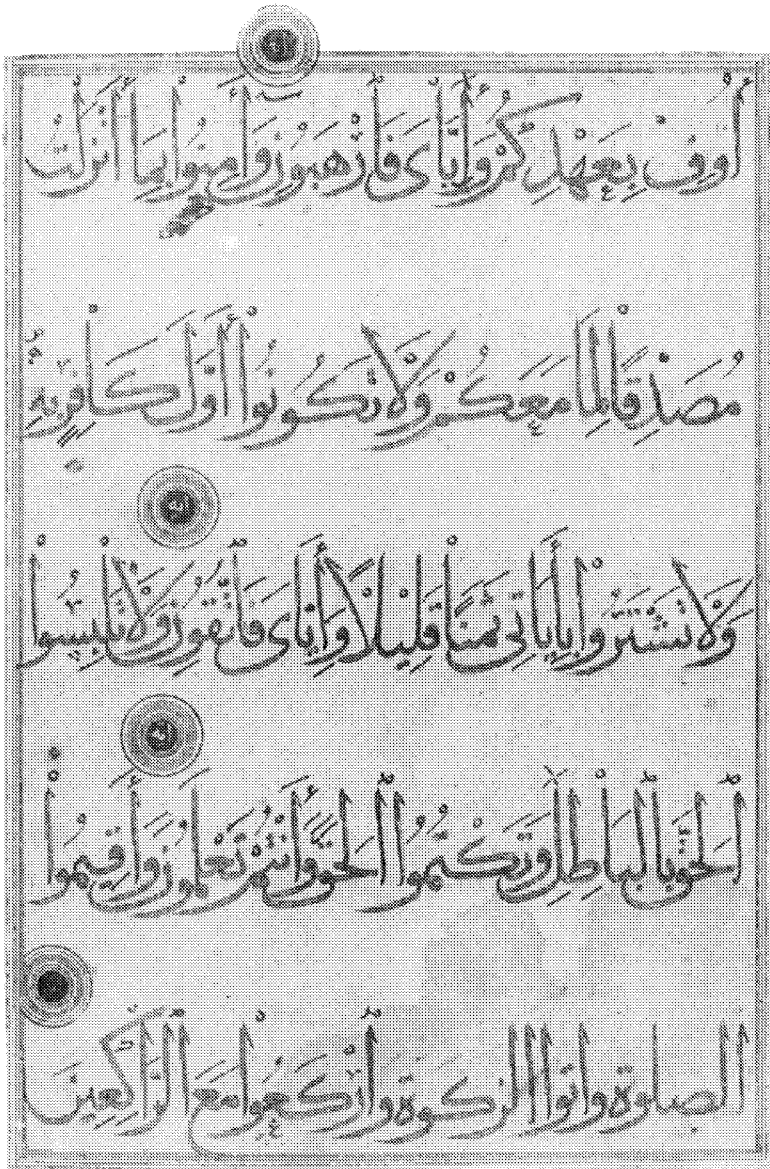 أُوفِ بِعَهْدِكُمْ وَإِيَّايَ فَٱرْهَبُونِ وَأَمِنُوا بِمَا أَنْزَلْتُ
مُصَدِّقًا لِمَا مَعَكُمْ وَلَا تَكُونُوا أَوَّلَ كَافِرٍ بِهِ
وَلَا تَشْتَرُوا بِأَيَاتِى ثَمَنًا قَلِيلًا وَإِيَّاىَ فَٱتَّقُونِ وَلَا تَلْبِسُوا
ٱلْحَقَّ بِٱلْبَاطِلِ وَتَكْتُمُوا ٱلْحَقَّ وَأَنْتُمْ تَعْلَمُونَ وَأَقِيمُوا
الصلوة واتوا الزكوة وَٱرْكَعُوا مَعَ ٱلرَّاكِعِينَ